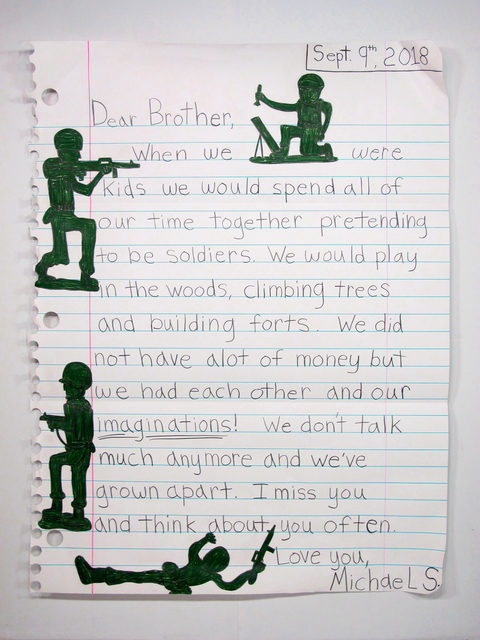 Sept. 9th, 2018
Dear Brother,
When we were
kids we would spend all of
our time together pretending
to be soldiers. We would play
in the woods, climbing trees
and building forts. We did
not have alot of money but
we had each other and our
imaginations! We don't talk
much anymore and we've
grown apart. I miss you
and think about you often.
Love you,
Michael S.